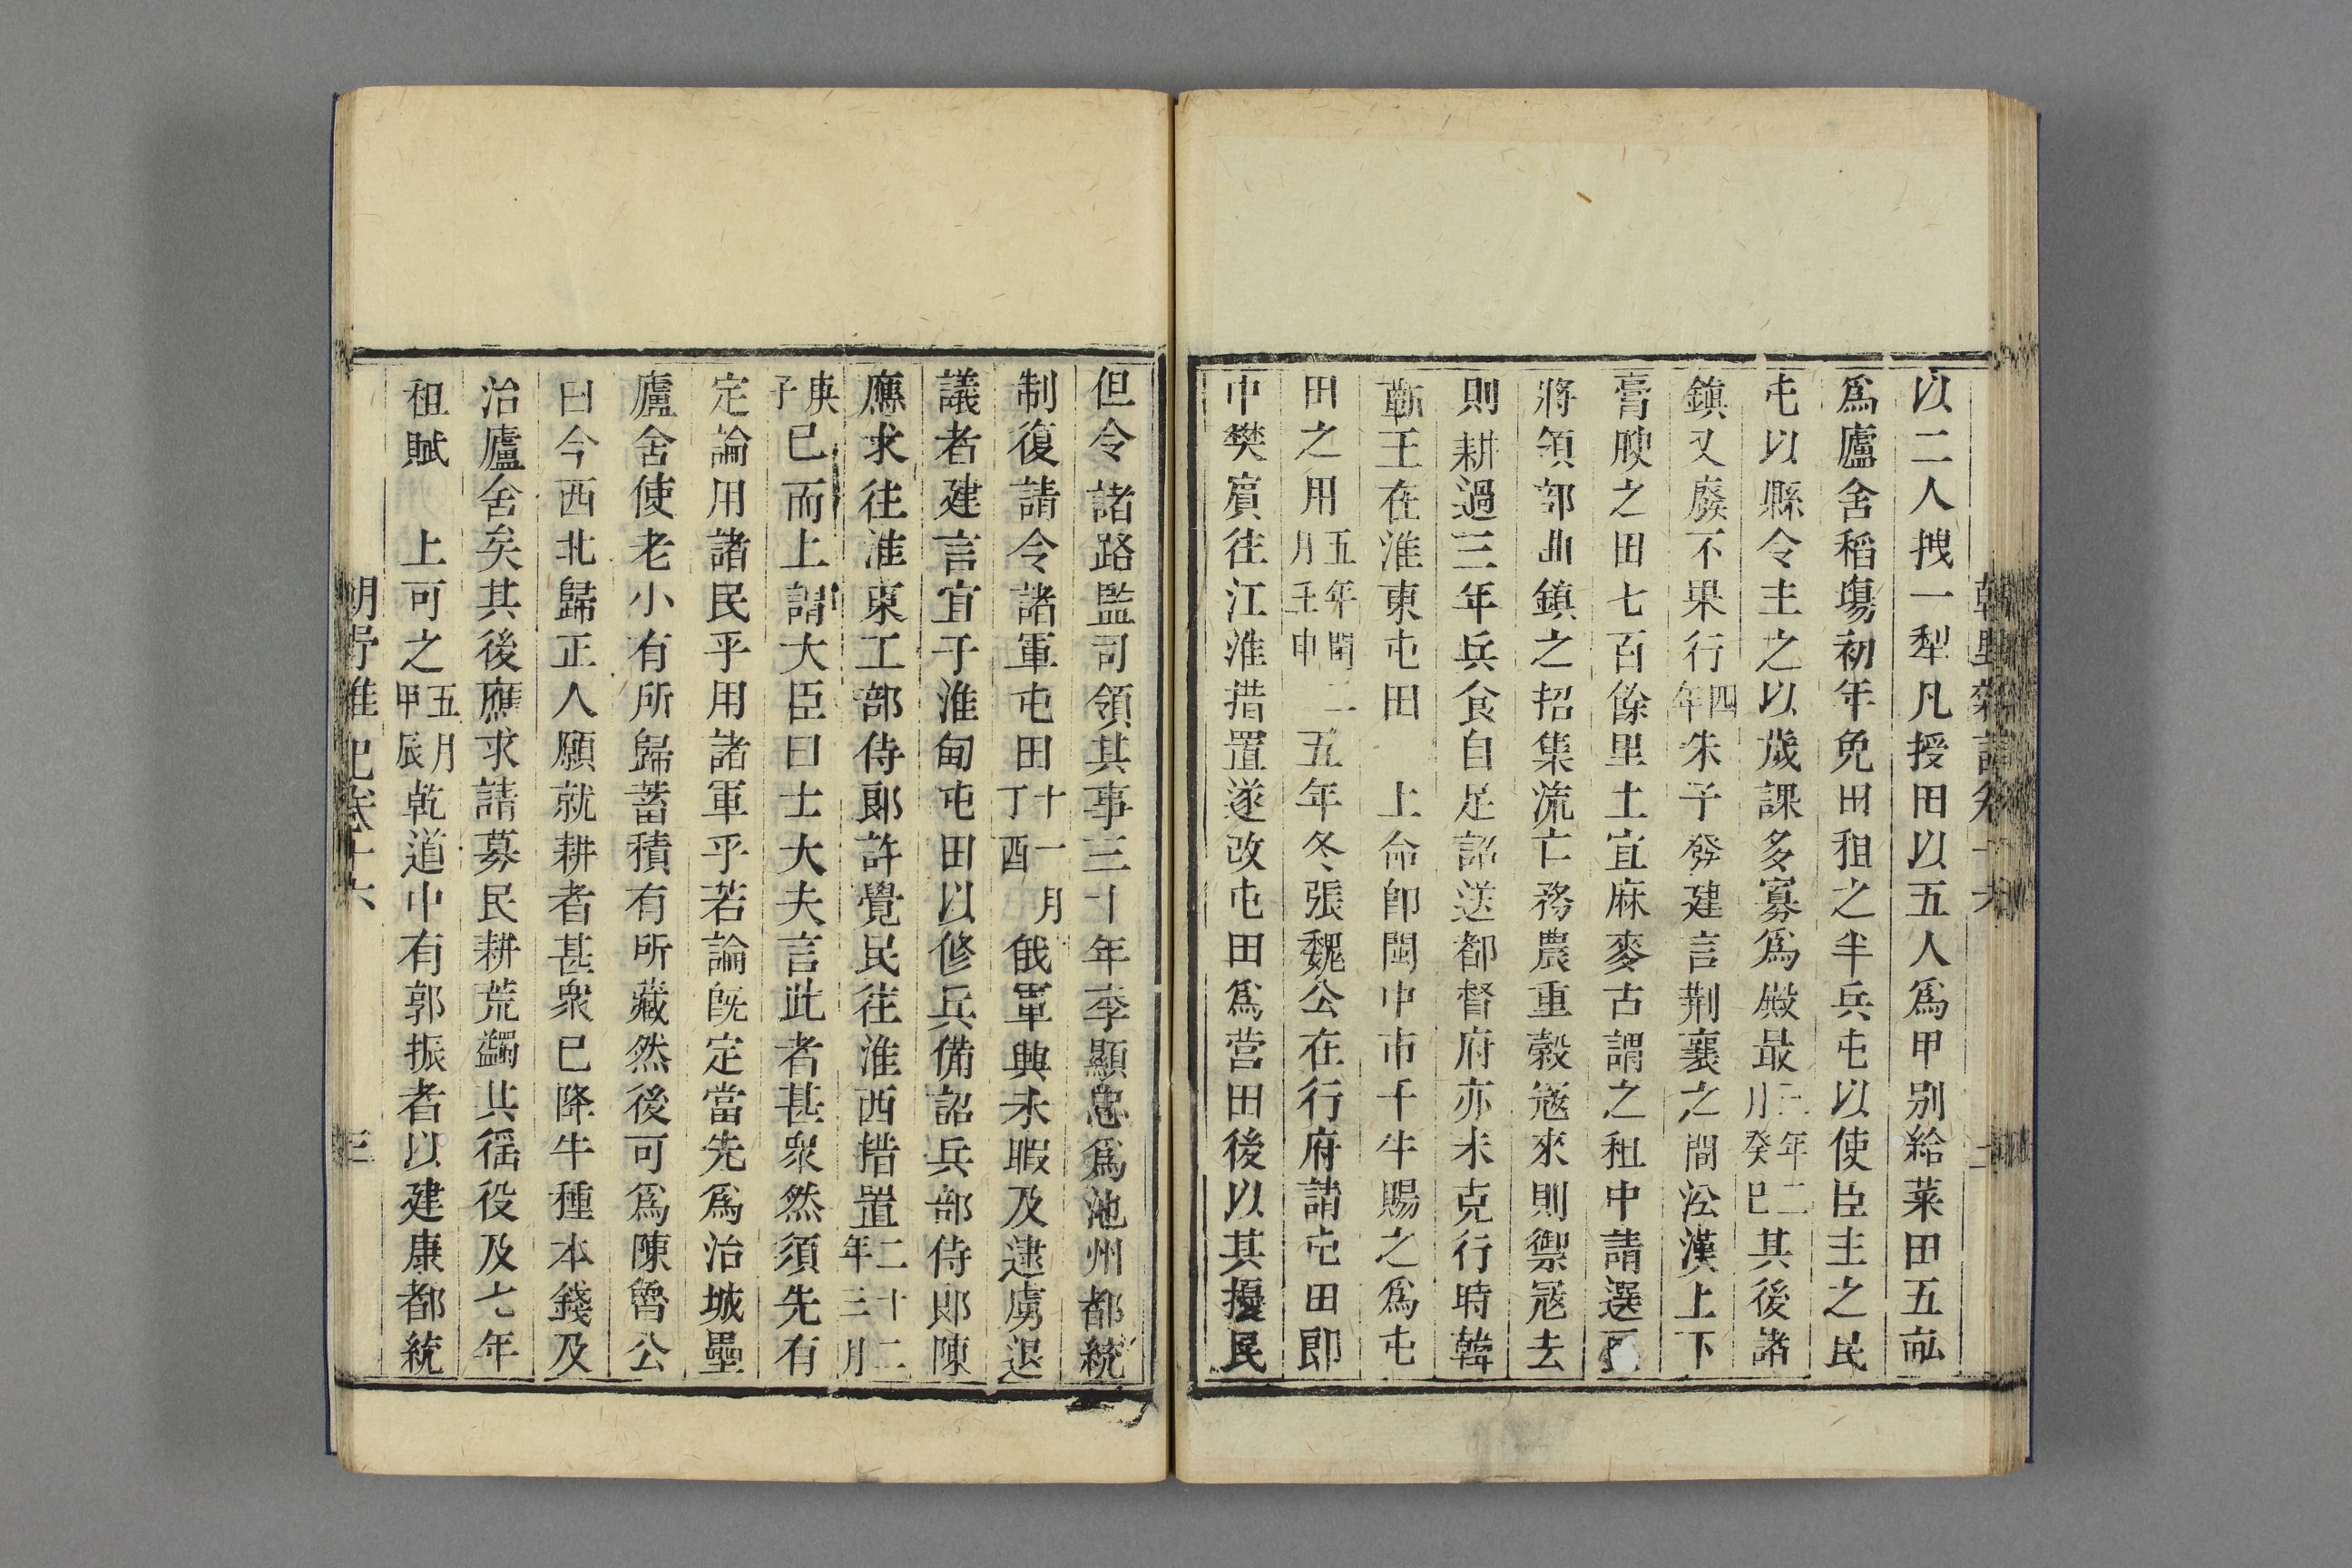 以二人拽一犁凡授田以五人爲甲别給菜田五畝
爲廬舍稻場初年免田租之半兵屯以使臣主之民
屯以縣令主之以歲課多寡爲殿最三年二月癸巳其後諸
鎮又廢不果行四年朱子發建言荆襄之間沿漢上下
膏腴之田七百餘里土宜麻麥古謂之租中請選
將領部曲鎮之招集流亡務農重穀寇來則禦冦去
則耕過三年兵食自足詔送都督府亦未克行時韓
蘄王在淮東屯田 上命卽閩中市千牛賜之爲屯
田之用五年閏二月壬申五年冬張魏公在行府請屯田郎
中樊賓往江淮措置遂改屯田爲营田後以其擾民
但令諸路監司領其事三十年李顯忠爲池州都統
制復請令諸軍屯田十一月丁酉俄軍興未暇及逮虜退
議者建言宜于淮甸屯田以修兵備詔兵部侍郎陳
應求往淮東工部侍郎許覺民往淮西措置二十二年三月
庚子已而上謂大臣曰士大夫言此者甚衆然須先有
定論用諸民乎用諸軍乎若論旣定當先爲治城壘
廬舍使老小有所歸蓄積有所藏然後可爲陳魯公
曰今西北歸正人願就耕者甚衆已降牛種本錢及
治廬舍矣其後應求請募民耕荒蠲其徭役及七年
租賦 上可之五月甲辰乾道中有郭振者以建康都統
三